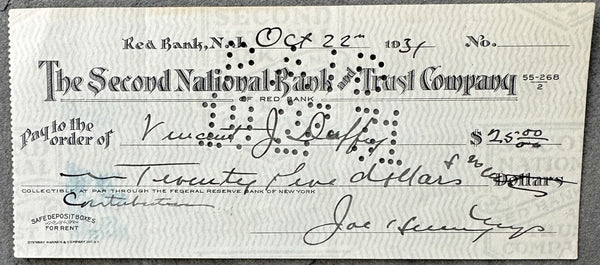 Red Bank, N. J. Oct 22nd 1931 No.
The Second National Bank and Trust Company 55-268
OF RED BANK 2
Pay to the
order of Vincent J. Duffy $ 25 00/00
Twenty five dollars & no Dollars
COLLECTIBLE AT PAR THROUGH THE FEDERAL RESERVE BANK OF NEW YORK
Contribution
SAFE DEPOSIT BOXES
FOR RENT
Joe